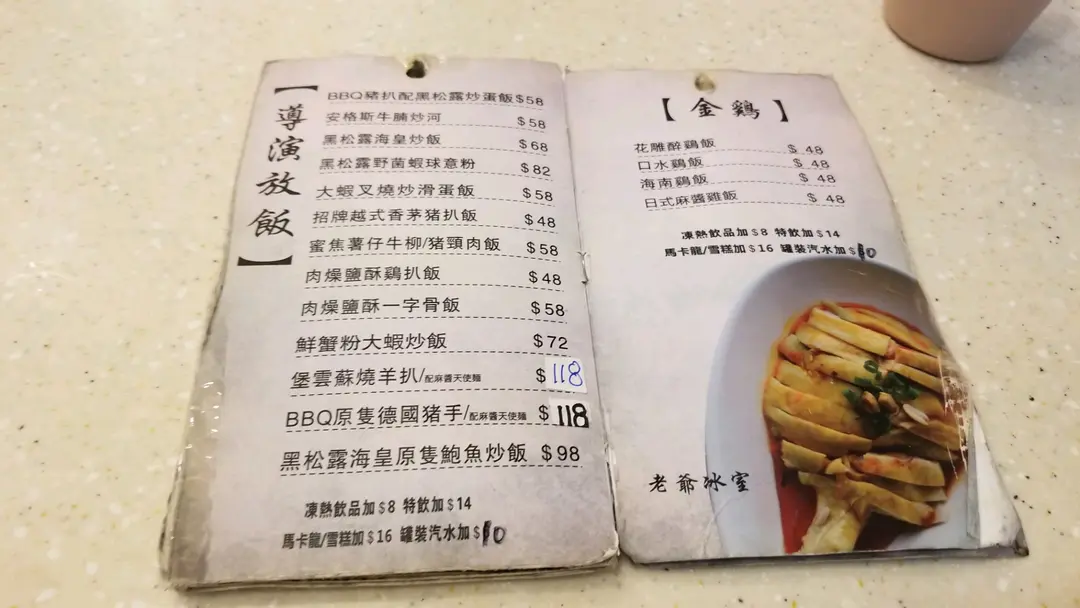 【導演放飯】
BBQ豬扒配黑松露炒蛋飯$58
安格斯牛腩炒河 $58
黑松露海皇炒飯 $68
黑松露野菌蝦球意粉 $82
大蝦叉燒炒滑蛋飯 $58
招牌越式香茅猪扒飯 $48
蜜焦薯仔牛柳/猪頸肉飯 $58
肉燥鹽酥鷄扒飯 $48
肉燥鹽酥一字骨飯 $58
鮮蟹粉大蝦炒飯 $72
堡雲蘇燒羊扒/配麻醬天使麵 $118
BBQ原隻德國猪手/配麻醬天使麵 $118
黑松露海皇原隻鮑魚炒飯 $98
凍熱飲品加$8 特飲加$14
馬卡龍/雪糕加$16 罐裝汽水加$10
【金鷄】
花雕醉鷄飯 $ 48
口水鷄飯 $ 48
海南鷄飯 $ 48
日式麻醬雞飯 $ 48
凍熱飲品加$8 特飲加$14
馬卡龍/雪糕加$16 罐裝汽水加$10
老爺冰室